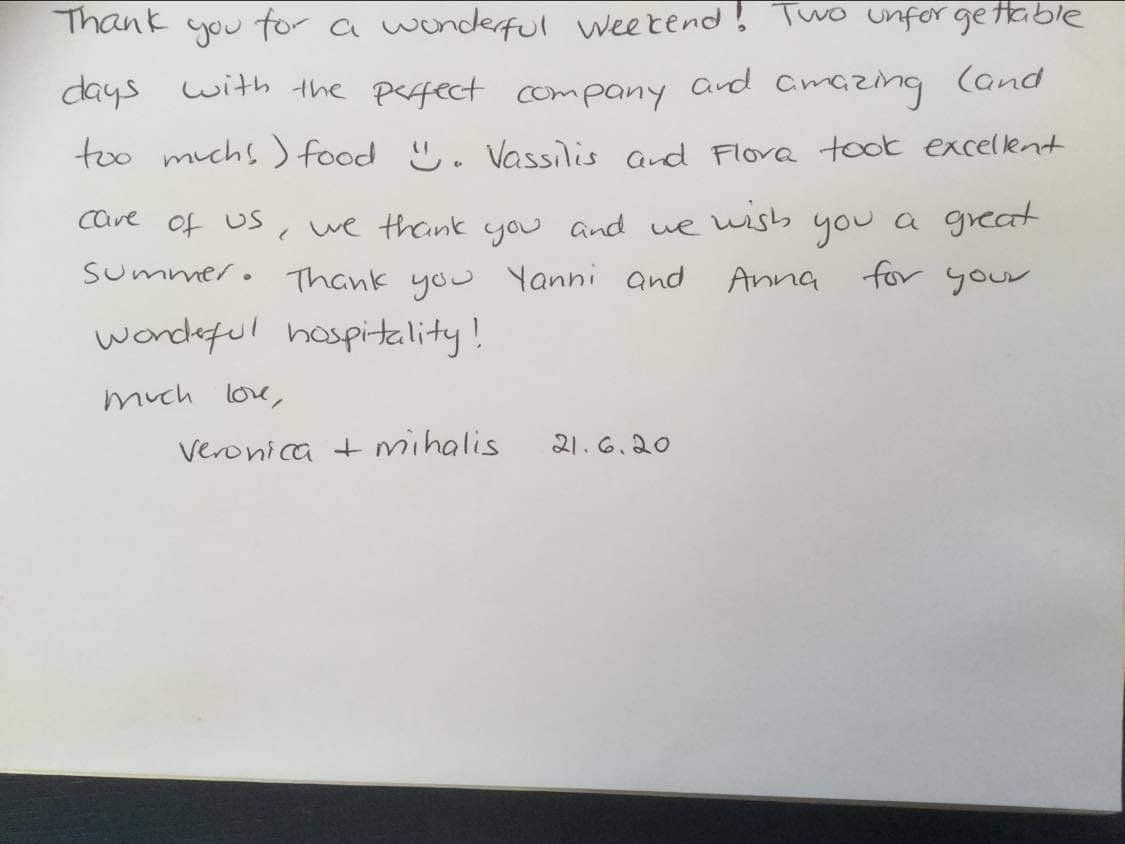 Thank you for a wonderful weekend! Two unforgettable
days with the perfect company and amazing (and
too much!) food :). Vassilis and Flora took excellent
care of us, we thank you and we wish you a great
summer. Thank you Yanni and Anna for your
wondeful hospitality!
much love,
Veronica + mihalis 21.6.20